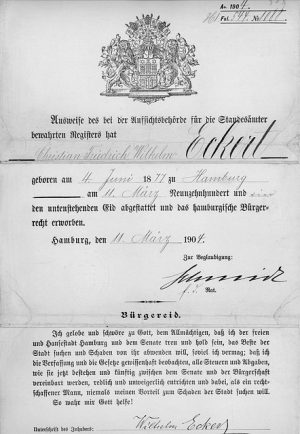 Av. 1904.
Fol. 544 No. 1081
Ausweise des bei der Aufsichtsbehörde für die Standesämter
bewahrten Registers hat
Christian Friedrich Wilhelm Eckert
geboren am 4. Juni 1877 zu Hamburg
am 11. März Neunzehnhundert und
den untenstehenden Eid abgestattet und das hamburgische Bürger-
recht erworben.
Hamburg, den 11. März 1904.
Zur Beglaubigung:
Schmidt
Rat.
Bürgereid.
Ich gelobe und schwöre zu Gott, dem Allmächtigen, daß ich der freien
und Hansestadt Hamburg und dem Senate treu und hold sein, das Beste der
Stadt suchen und Schaden von ihr abwenden will, soviel ich vermag; daß ich
die Verfassung und die Gesetze gewissenhaft beobachten, alle Steuern und Abgaben,
wie sie jetzt bestehen und künftig zwischen dem Senate und der Bürgerschaft
vereinbart werden, redlich und unweigerlich entrichten und dabei, als ein recht-
schaffener Mann, niemals meinen Vorteil zum Schaden der Stadt suchen will.
So wahr mir Gott helfe!
Unterschrift des Inhabers: Wilhelm Eckert